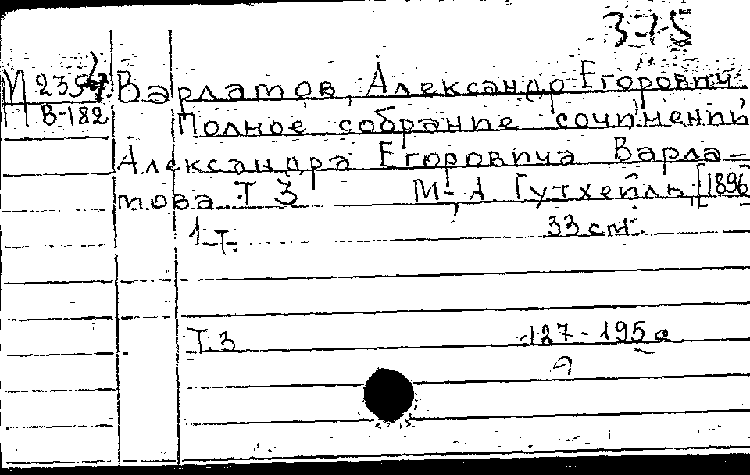 3-1-5
М 235
В-182
Варламов, Александр Егорович.
Полное собрание сочинений
Александра Егоровича Варла-
мова. Т. 3 М., А. Гутхейль, [1896
1 т. 33 см.
Т. 3 127-195 с